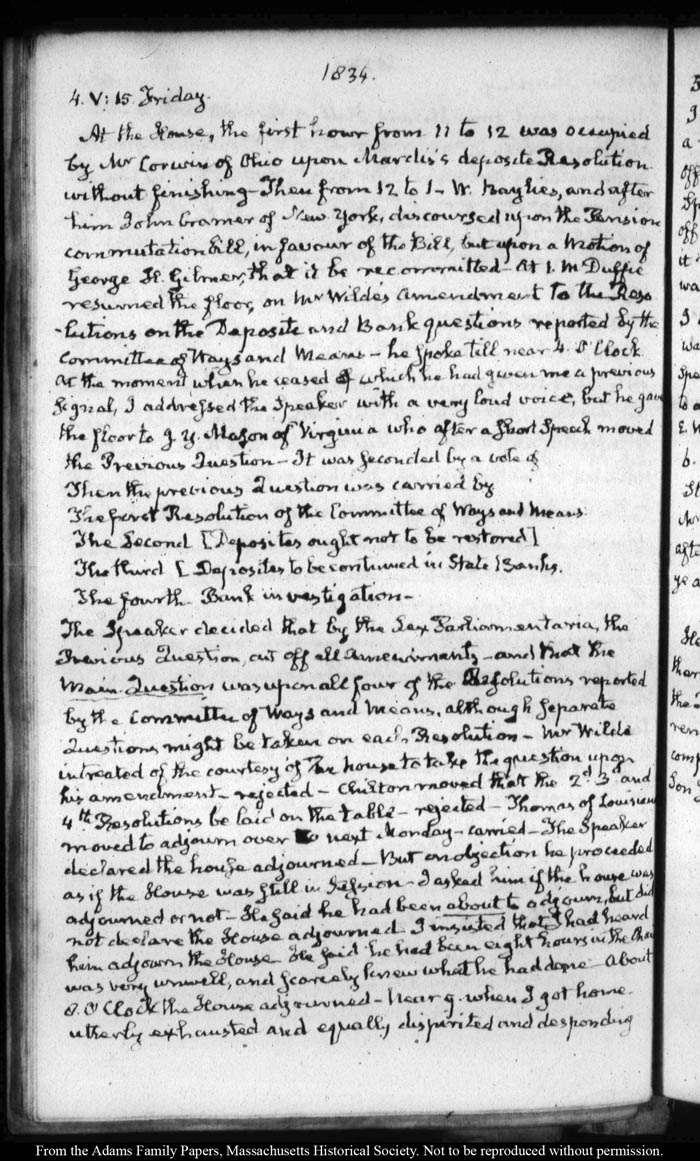 1834.
4. V: 15. Friday.
At the House, the first hour from 11 to 12 was occupied
by Mr Corwin of Ohio upon Mardis's deposite Resolution
without finishing - Then from 12 to 1 - W. Baylies, and after
him John Cramer of New York, discoursed upon the Pension
commutation bill, in favour of the Bill, but upon a Motion of
George H. Gilmer, that it be recommitted - At 1. McDuffie
resumed the floor, on Mr Wilde's amendment to the Reso
-lutions on the Deposite and Bank questions reported by the
Committee of Ways and Means - he spoke till near 4. O'Clock.
At the moment when he ceased of which he had given me a previous
signal, I addressed the Speaker with a very loud voice, but he gave
the floor to J. Y. Mason of Virginia who after a short Speech moved
the Previous Question - It was seconded by a vote of
Then the previous Question was carried by
The first Resolution of the Committee of Ways and Means
The Second [Deposites ought not to be restored]
The third [Deposites to be continued in State Banks.
The fourth Bank investigation -
The Speaker decided that by the Lex Parliamentaria, the
Previous Question, cut off all amendments - and that the
Main Question was upon all four of the Resolutions reported
by the Committee of Ways and Means, although separate
Questions might be taken on each Resolution - Mr Wilde
intreated of the courtesy of the house to take the question upon
his amendment - rejected - Chilton moved that the 2d. 3d and
4th Resolutions be laid on the table - rejected - Thomas of Louisiana
moved to adjourn over to next Monday - carried - The Speaker
declared the house adjourned - But on objection he proceeded
as if the House was still in Session - I asked him if the house was
adjourned or not - He said he had been about to adjourn, but did
not declare the House adjourned. I insisted that I had heard
him adjourn the House - He said he had been eight hours in the Chair
was very unwell, and scarcely knew what he had done - About
8. O'Clock the House adjourned - Near 9. when I got home.
utterly exhausted and equally dispirited and desponding
From the Adams Family Papers, Massachusetts Historical Society. Not to be reproduced without permission.